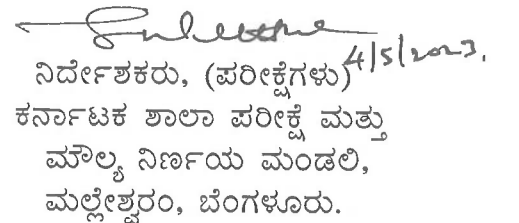 4/5/2023.
ನಿರ್ದೇಶಕರು, (ಪರೀಕ್ಷೆಗಳು)
ಕರ್ನಾಟಕ ಶಾಲಾ ಪರೀಕ್ಷೆ ಮತ್ತು
ಮೌಲ್ಯ ನಿರ್ಣಯ ಮಂಡಲಿ,
ಮಲ್ಲೇಶ್ವರಂ, ಬೆಂಗಳೂರು.